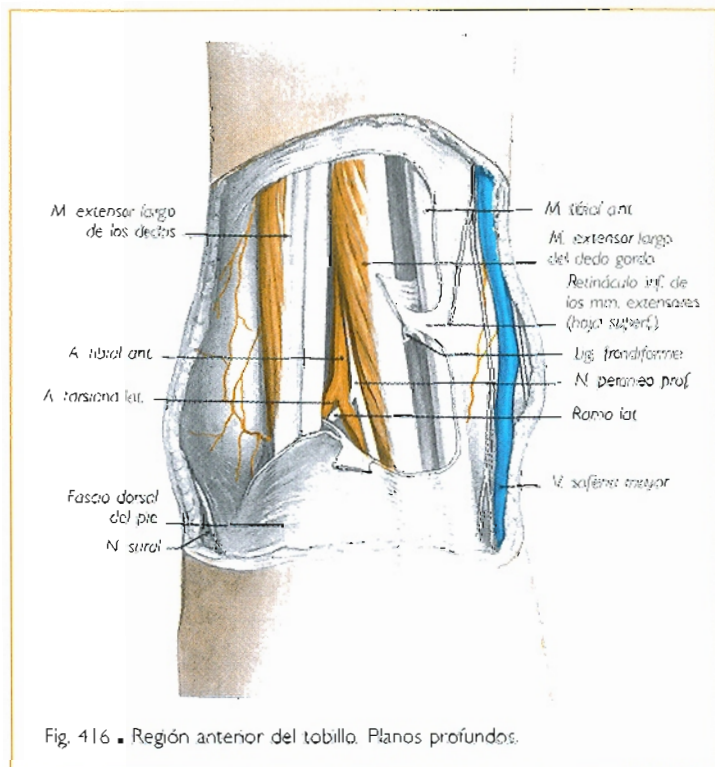 M. extensor largo
de los dedos
A. tibial ant.
A. tarsiana lat.
Fascia dorsal
del pie
N. sural
M. tibial ant.
M. extensor largo
del dedo gordo
Retináculo inf. de
los mm. extensores
(hoja superf.)
Lig. frondiforme
N. peroneo prof.
Ramo lat.
V. safena mayor
Fig. 416 ▪ Región anterior del tobillo. Planos profundos.